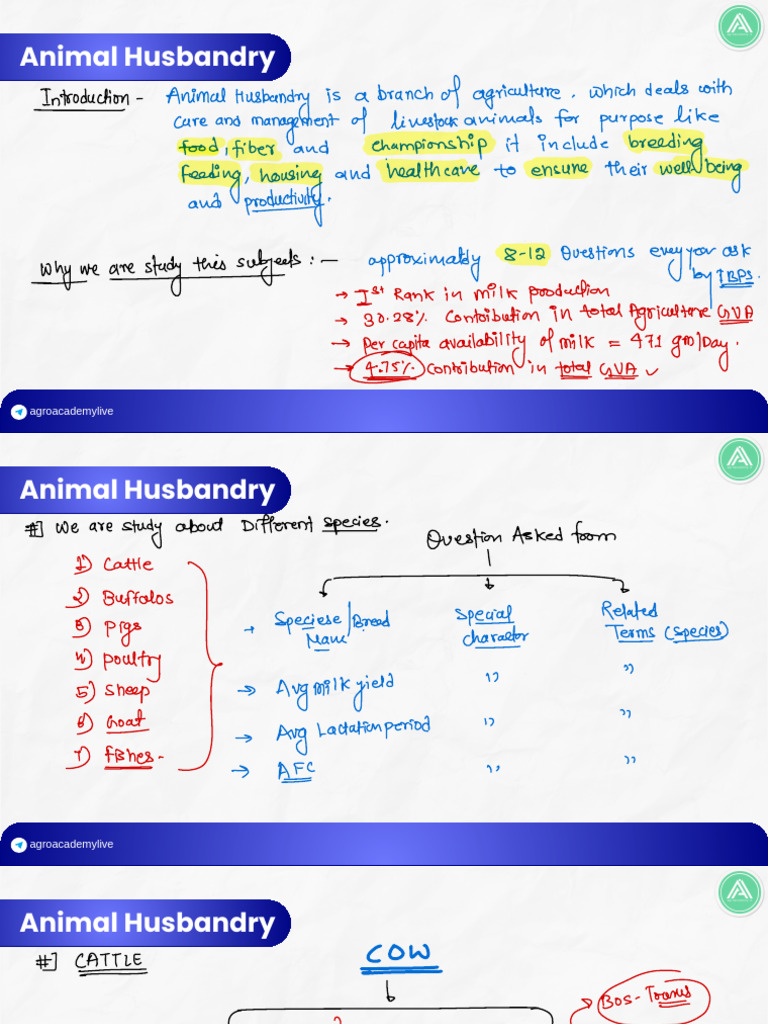 Animal Husbandry
Introduction - Animal Husbandry is a branch of agriculture. which deals with
care and management of livestock animals for purpose like
food, fiber and championship it include breeding
feeding, housing and healthcare to ensure their well being
and productivity.
Why we are study this subjects :- approximately 8-12 Questions every year ask
by IBPS.
→ Ist Rank in milk production
→ 30.28% Contribution in total Agriculture GVA
→ Per capita availability of milk = 471 gm/Day.
→ 4.75% Contribution in total GVA ✓
agroacademylive
Animal Husbandry
#] We are study about Different species.
Question Asked from
1) Cattle
2) Buffalos
3) Pigs
4) Poultry
5) Sheep
6) Goat
7) fishes-
→ Speciese/Bread
Name
Special
Character
Related
Terms (species)
→ Avg milk yield " "
→ Avg Lactation period " "
→ AFC " "
agroacademylive
Animal Husbandry
#] CATTLE
COW
Bos-Taurus